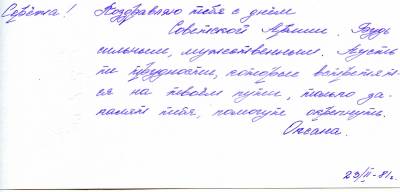 Серёжа! Поздравляю тебя с днём
Советской Армии. Будь
сильным, мужественным. Пусть
те трудности, которые встретят-
ся на твоём пути, только за-
калят тебя, помогут окрепнуть.
Оксана.
23/II-81г.